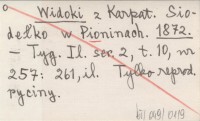 Widoki z Karpat. Sio-
dełko w Pioninach. 1872.
— Tyg. Il. ser. 2, t. 10, nr
257: 261, il. Tylko reprod.
ryciny.